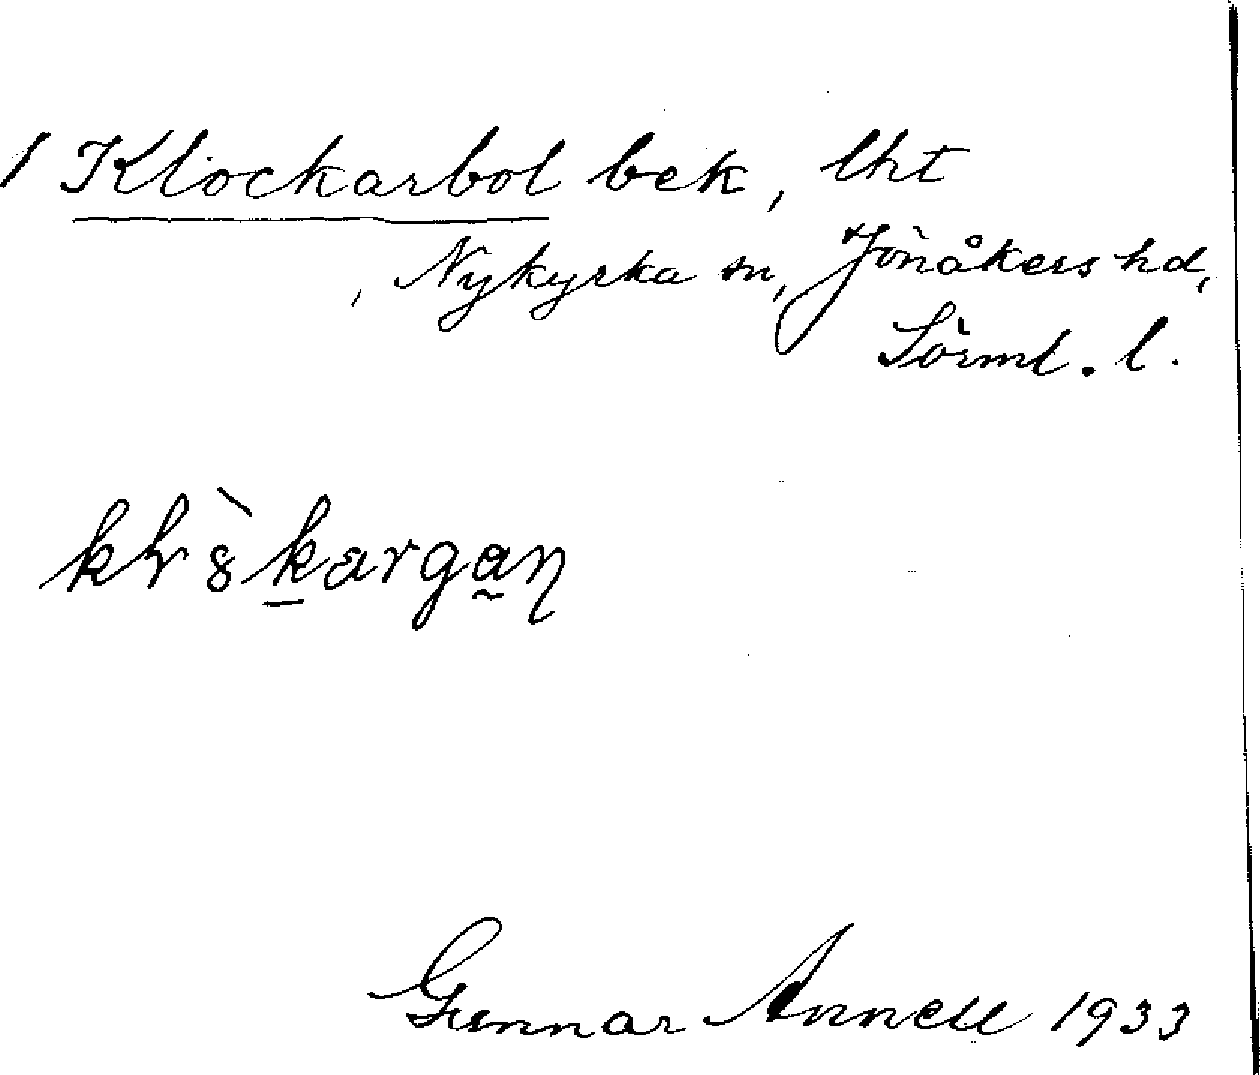 1 Klockarbol bek, lht
, Nykyrka sn, Jönåkers hd,
Sörml. l.
Gunnar Annell 1933